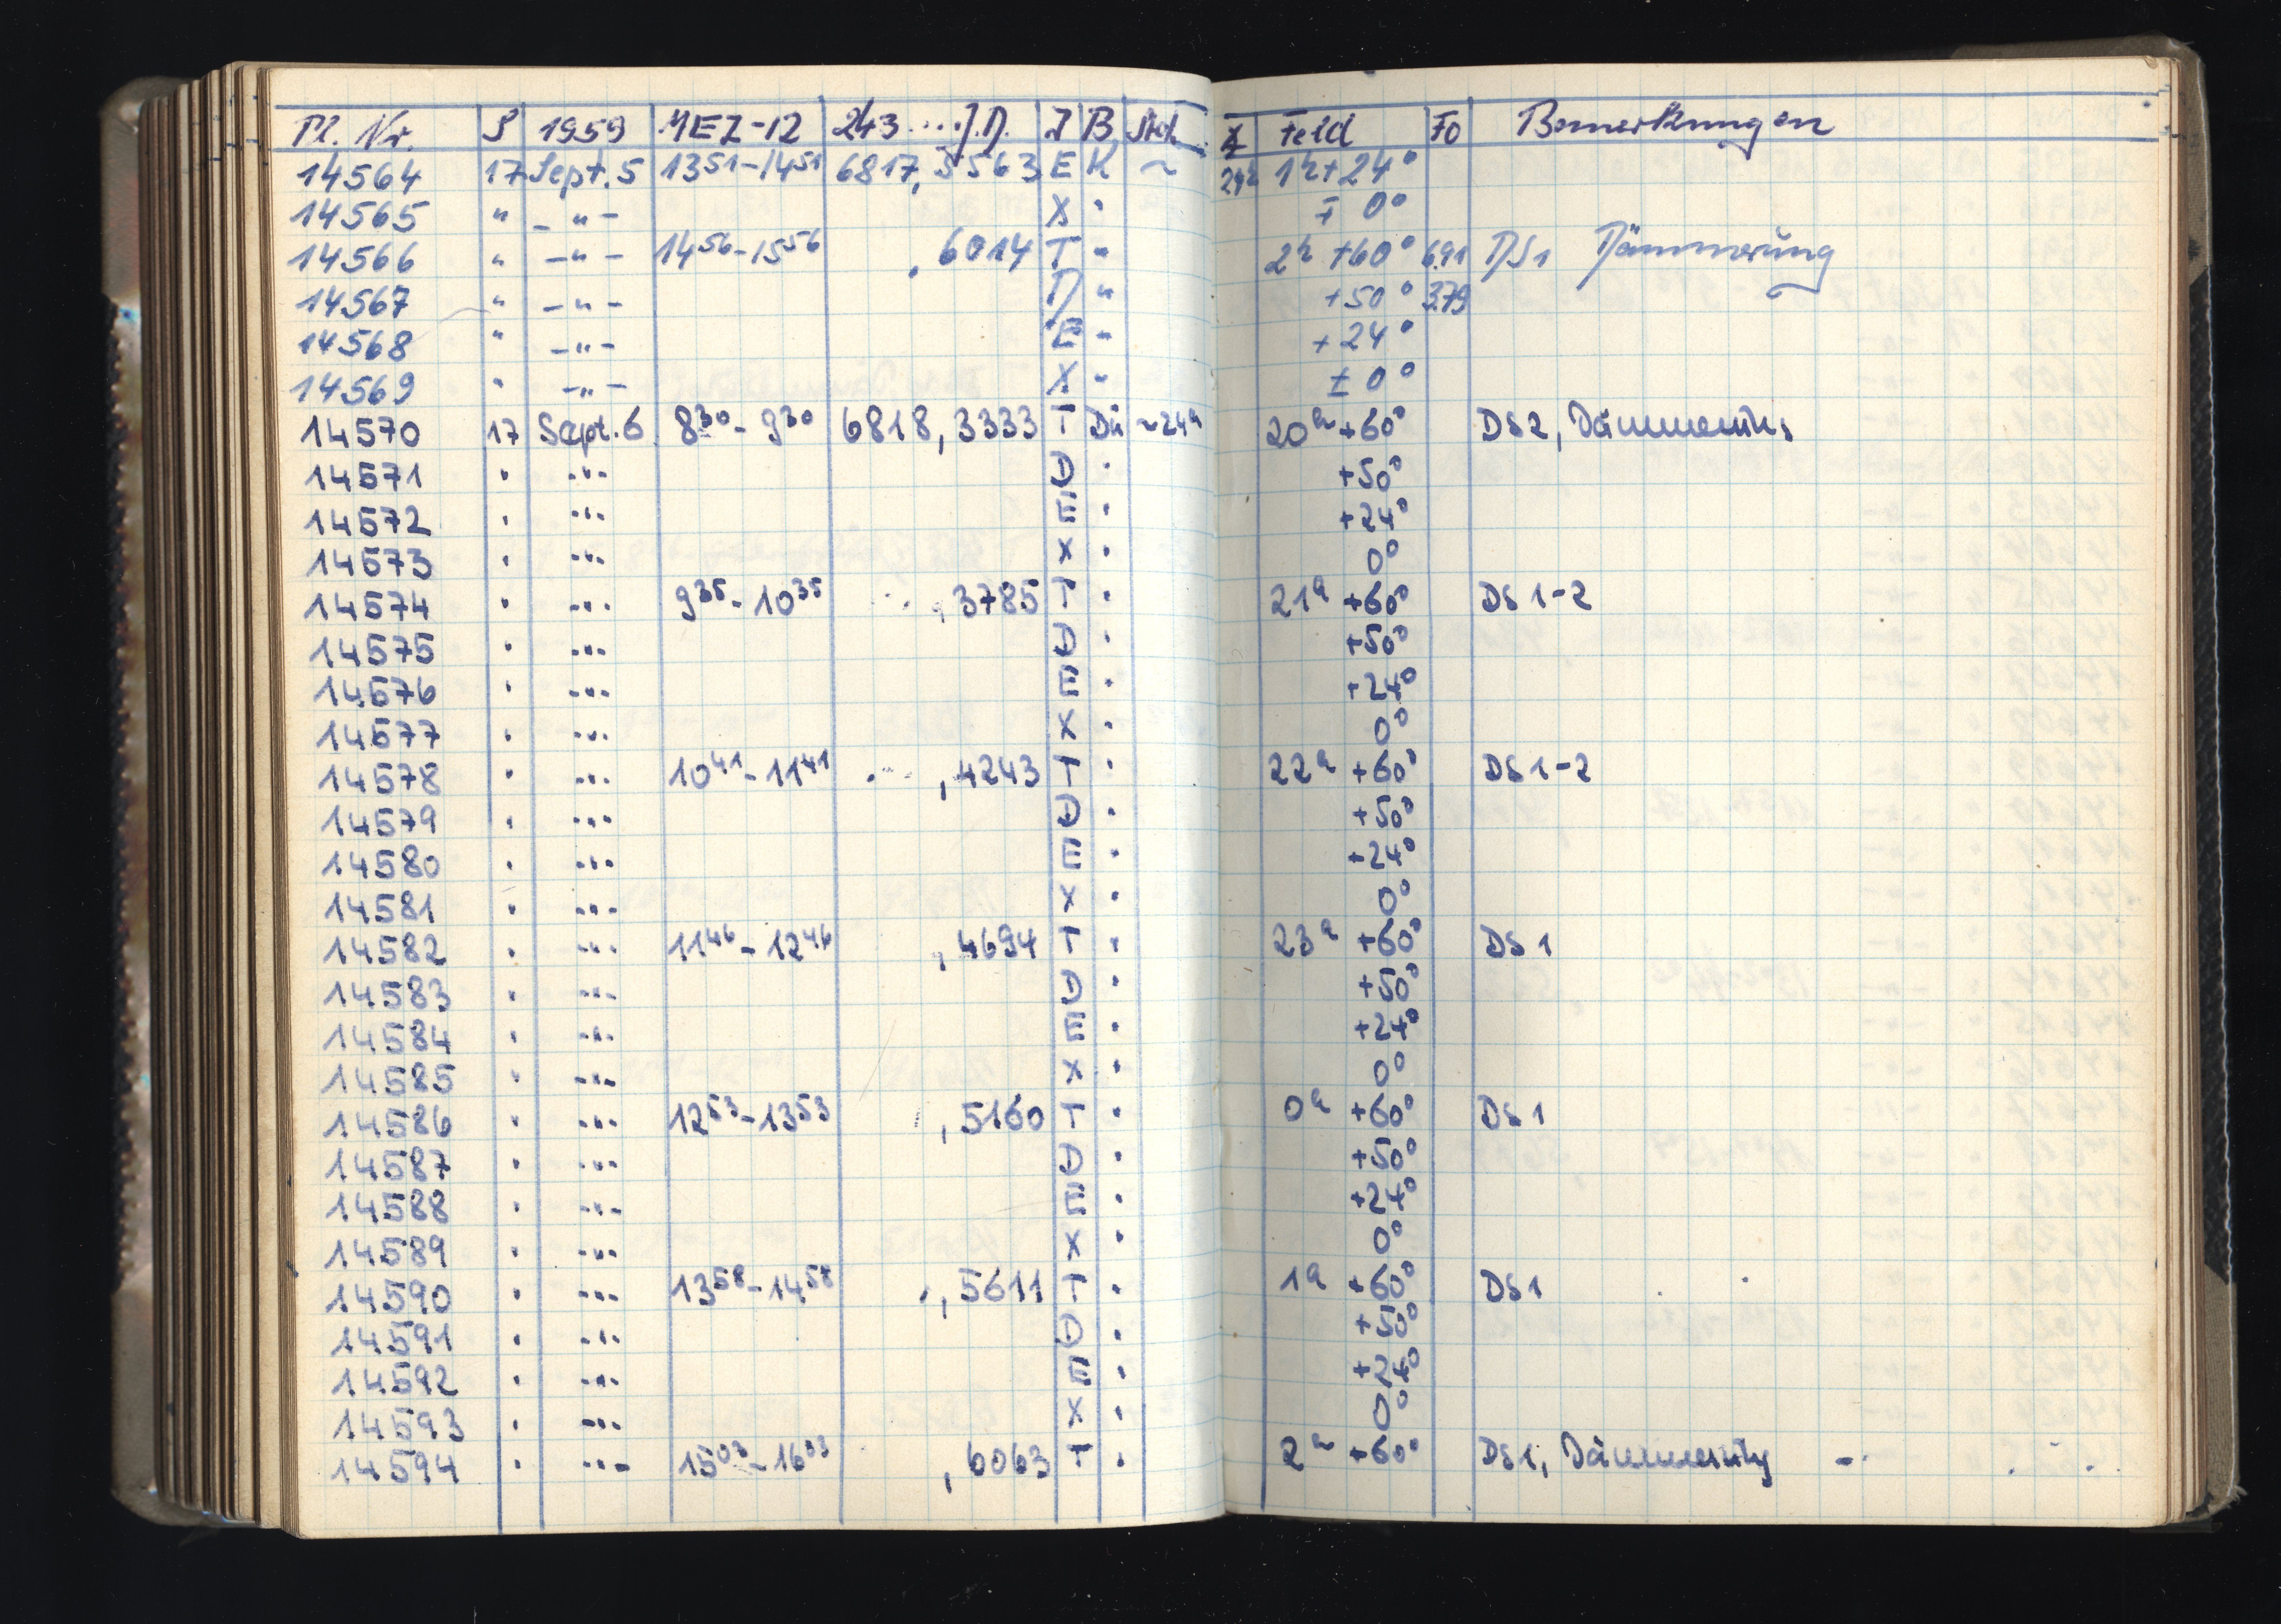 Pl. Nr. S 1959 MEZ-12 243....J.D. I B Std. Feld Fo Bemerkungen
14564 17 Sept. 5 13⁵¹-14⁵¹ 6817,5563 E K ~ 24h 1h+24°
14565 " -"- X " ∓ 0°
14566 " -"- 14⁵⁶-15⁵⁶ ,6014 T " 2h +60° 6.91 DS1 Dämmerung
14567 " -"- D " +50° 3.79
14568 " -"- E " +24°
14569 " -"- X " ± 0°
14570 17 Sept. 6 8³⁰-9³⁰ 6818,3333 T Dü ~24h 20h+60° DS2, Dämmerung
14571 " -"- D " +50°
14572 " -"- E " +24°
14573 " -"- X " 0°
14574 " -"- 9³⁵-10³⁵ -"- ,3785 T " 21h +60° DS1-2
14575 " -"- D " +50°
14576 " -"- E " +24°
14577 " -"- X " 0°
14578 " -"- 10⁴¹-11⁴¹ -"- ,4243 T " 22h +60° DS1-2
14579 " -"- D " +50°
14580 " -"- E " +24°
14581 " -"- X " 0°
14582 " -"- 11⁴⁶-12⁴⁶ ,4694 T " 23h +60° DS1
14583 " -"- D " +50°
14584 " -"- E " +24°
14585 " -"- X " 0°
14586 " -"- 12⁵³-13⁵³ ,5160 T " 0h +60° DS1
14587 " -"- D " +50°
14588 " -"- E " +24°
14589 " -"- X " 0°
14590 " -"- 13⁵⁸-14⁵⁸ ,5611 T " 1h +60° DS1
14591 " -"- D " +50°
14592 " -"- E " +24°
14593 " -"- X " 0°
14594 " -"- 15⁰³-16⁰³ ,6063 T " 2h +60° DS1, Dämmerung